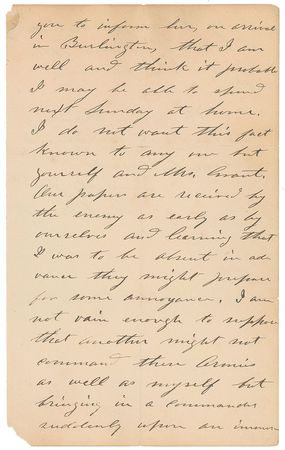 you to inform her, on arrival
in Burlington, that I am
well and think it probable
I may be able to spend
next Sunday at home.
I do not want this fact
known to any one but
yourself and Mrs. Grant.
Our papers are received by
the enemy as early as by
ourselves and learning that
I was to be absent in ad
vance they might prepare
for some annoyance. I am
not vain enough to suppose
that another might not
command these Armies
as well as myself but
bringing in a commander
suddenly upon an